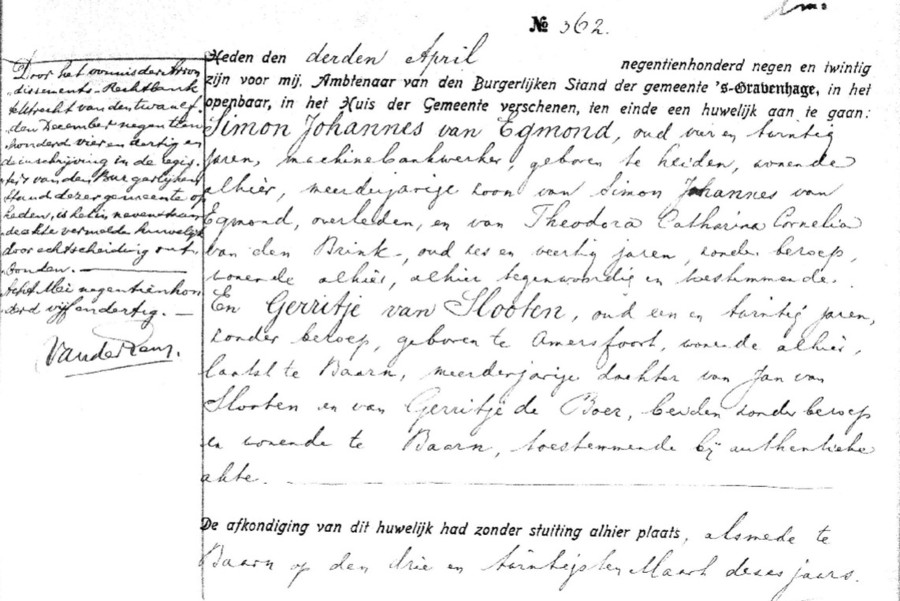 № 362.
Door het vonnis der Arron
dissements-Rechtbank
te Utrecht van den twaalf
den December negentien
honderd vier en dertig en
de inschrijving in de regis
ters van den Burgerlijken
Stand dezer gemeente op
heden, is het in nevenstaan
de akte vermelde huwelijk
door echtscheiding ont
bonden.
acht Mei negentienhon
derd vijf en dertig.
Heden den derden April negentienhonderd negen en twintig
zijn voor mij, Ambtenaar van den Burgerlijken Stand der gemeente 's-Gravenhage, in het
openbaar, in het Huis der Gemeente verschenen, ten einde een huwelijk aan te gaan:
Simon Johannes van Egmond, oud vier en twintig
jaren, machinebankwerker, geboren te Leiden, wonende
alhier, meerderjarige zoon van Simon Johannes van
Egmond, overleden, en van Theodora Catharina Cornelia
van den Brink, oud zes en veertig jaren, zonder beroep,
wonende alhier, alhier tegenwoordig en toestemmende.
En Gerritje van Slooten, oud een en twintig jaren,
zonder beroep, geboren te Amersfoort, wonende alhier,
laatst te Baarn, meerderjarige dochter van Jan van
Slooten en van Gerritje de Boer, beiden zonder beroep
en wonende te Baarn, toestemmende bij authentieke
akte.
De afkondiging van dit huwelijk had zonder stuiting alhier plaats, alsmede te
Baarn op den drie en twintigsten Maart dezes jaars.